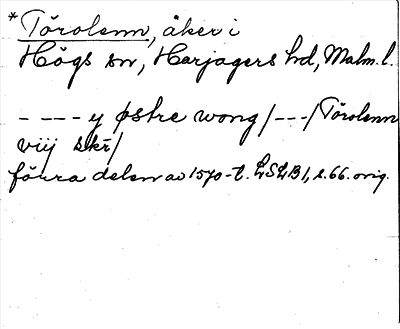 *Törolenn, åker i
Högs sn, Harjagers hd, Malm. l.
- - - - y østre wong /- - -/ Törolenn
viij skr /
förra delen av 1570-t. LSLB 1, s. 66. orig.